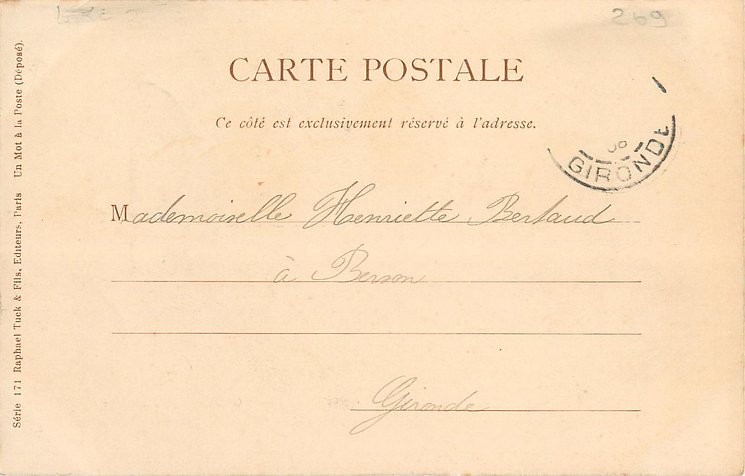 269
CARTE POSTALE
Ce côté est exclusivement réservé à l'adresse.
08
GIRONDE
Mademoiselle Henriette Bertaud
à Berson
Gironde
Série 171 Raphael Tuck & Fils, Editeurs, Paris Un Mot à la Poste (Déposé).